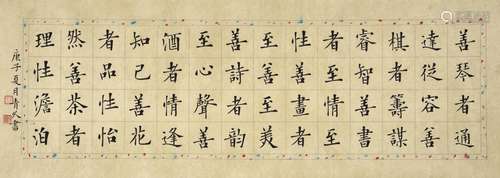 善琴者通
達從容善
棋者籌謀
睿智善書
者至情至
性善畫者
至善至美
善詩者韵
至心聲善
酒者情逢
知己善花
者品性怡
然善茶者
理性澹泊
庚子夏月青書